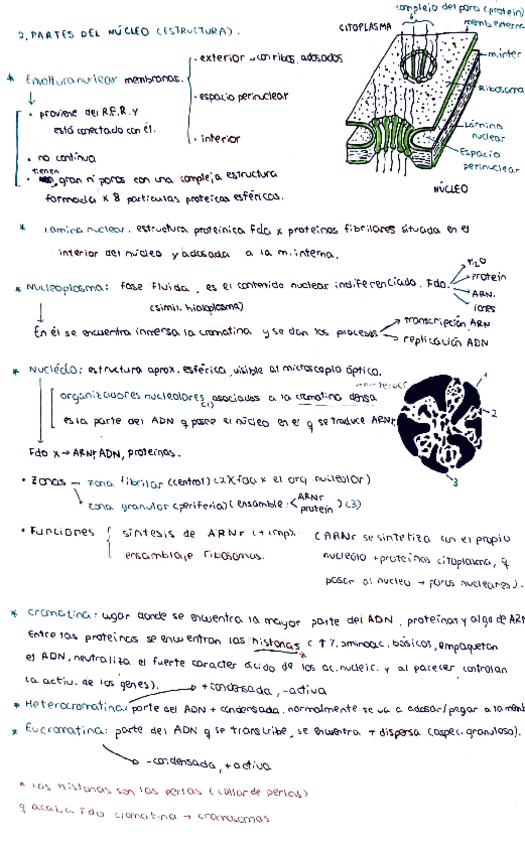 complejo del poro (protein)
2. PARTES DEL NÚCLEO (ESTRUCTURA).
CITOPLASMA
memb. externa
m.inter
Ribosoma
Lámina nuclear
Espacio perinuclear
NÚCLEO
* Envoltura nuclear membranas.
· exterior → con ribos. adosados
· espacio perinuclear
· interior
· proviene del R.E.R. y
está conectado con él.
· no continua
tienen
· gran nº poros con una compleja estructura
formada x 8 partículas proteicas esféricas.
* Lamina nuclear. estructura proteinica Fda x proteinas fibrilares situada en el
interior del núcleo y adosada a la m.interna.
* Nucleoplasma: fase fluida, es el contenido nuclear indiferenciado. Fdo.
H2O
protein
ARN.
iones
(simil. hialoplasma)
En él se encuentra inmersa la cromatina y se dan los procesos
transcripción ARN
replicación ADN
* Nucléolo: estructura aprox. esférica, visible al microscopio óptico.
organizadores nucleolares, asociados a la cromatina densa
(1)
es la parte del ADN q posee el núcleo en el q se traduce ARNr
1
2
3
Fdo x → ARNr ADN, proteinas.
· Zonas → zona fibrilar (central) (2) x fda x el org nucleolar)
zona granular (periferia) (ensamble: < ARNr
protein ) (3)
· Funciones { síntesis de ARNr (+ imp). (ARNr se sintetiza en el propio
ensamblaje ribosomas. nucléolo + proteinas citoplasma, q
pasan al nucleo → poros nucleares).
* Cromatina: lugar donde se encuentra la mayor parte del ADN, proteinas y algo de ARN
Entre las proteinas se encuentran las histonas (↑ % aminoác. básicos, empaquetan
el ADN, neutraliza el fuerte caracter ácido de los ac. nucleic. y al parecer controlan
la activ. de los genes).
+condensada, -activa
* Heterocromatina: parte del ADN + condensada. normalmente se va a adosar/pegar a la memb
* Eucromatina: parte del ADN q se transcribe, se encuentra + dispersa (aspec. granuloso).
-condensada, +activa
* las histonas son las perlas (collar de perlas)
q acaba fdo cromatina → cromosomas